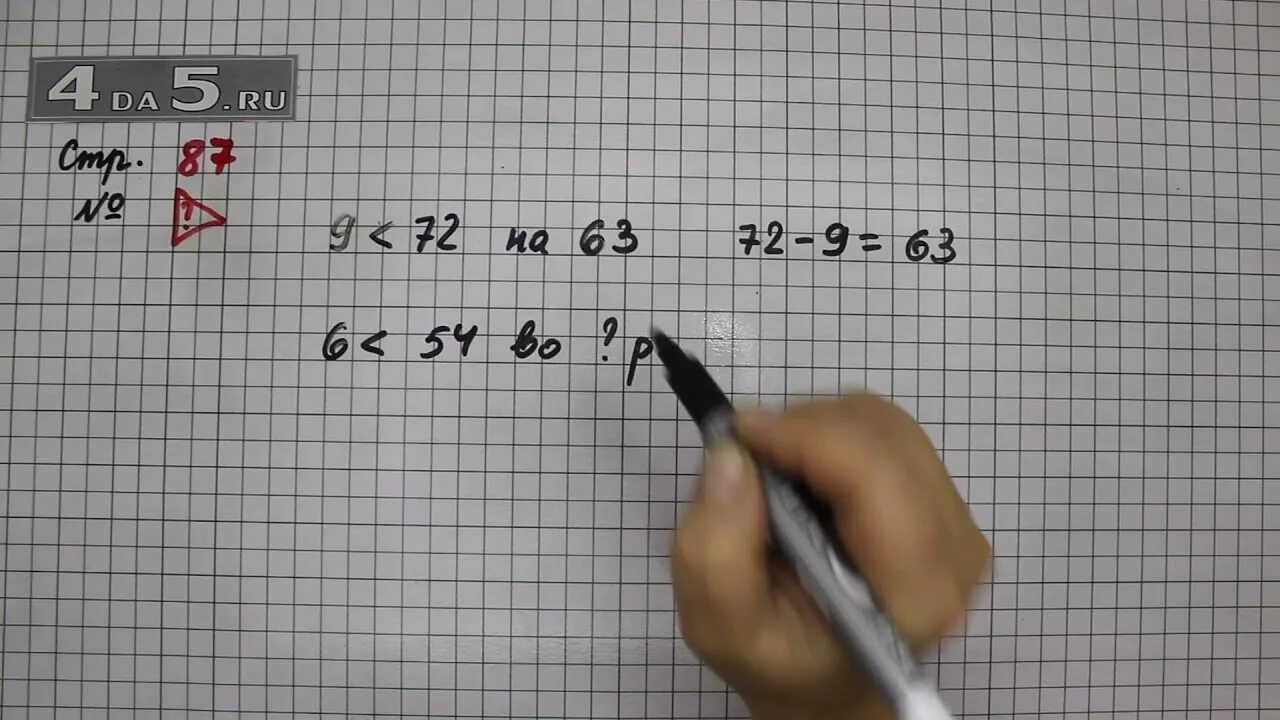 4DA5.RU
Стр. 87
№ ?
9 < 72 на 63 72 - 9 = 63
6 < 54 во ? р